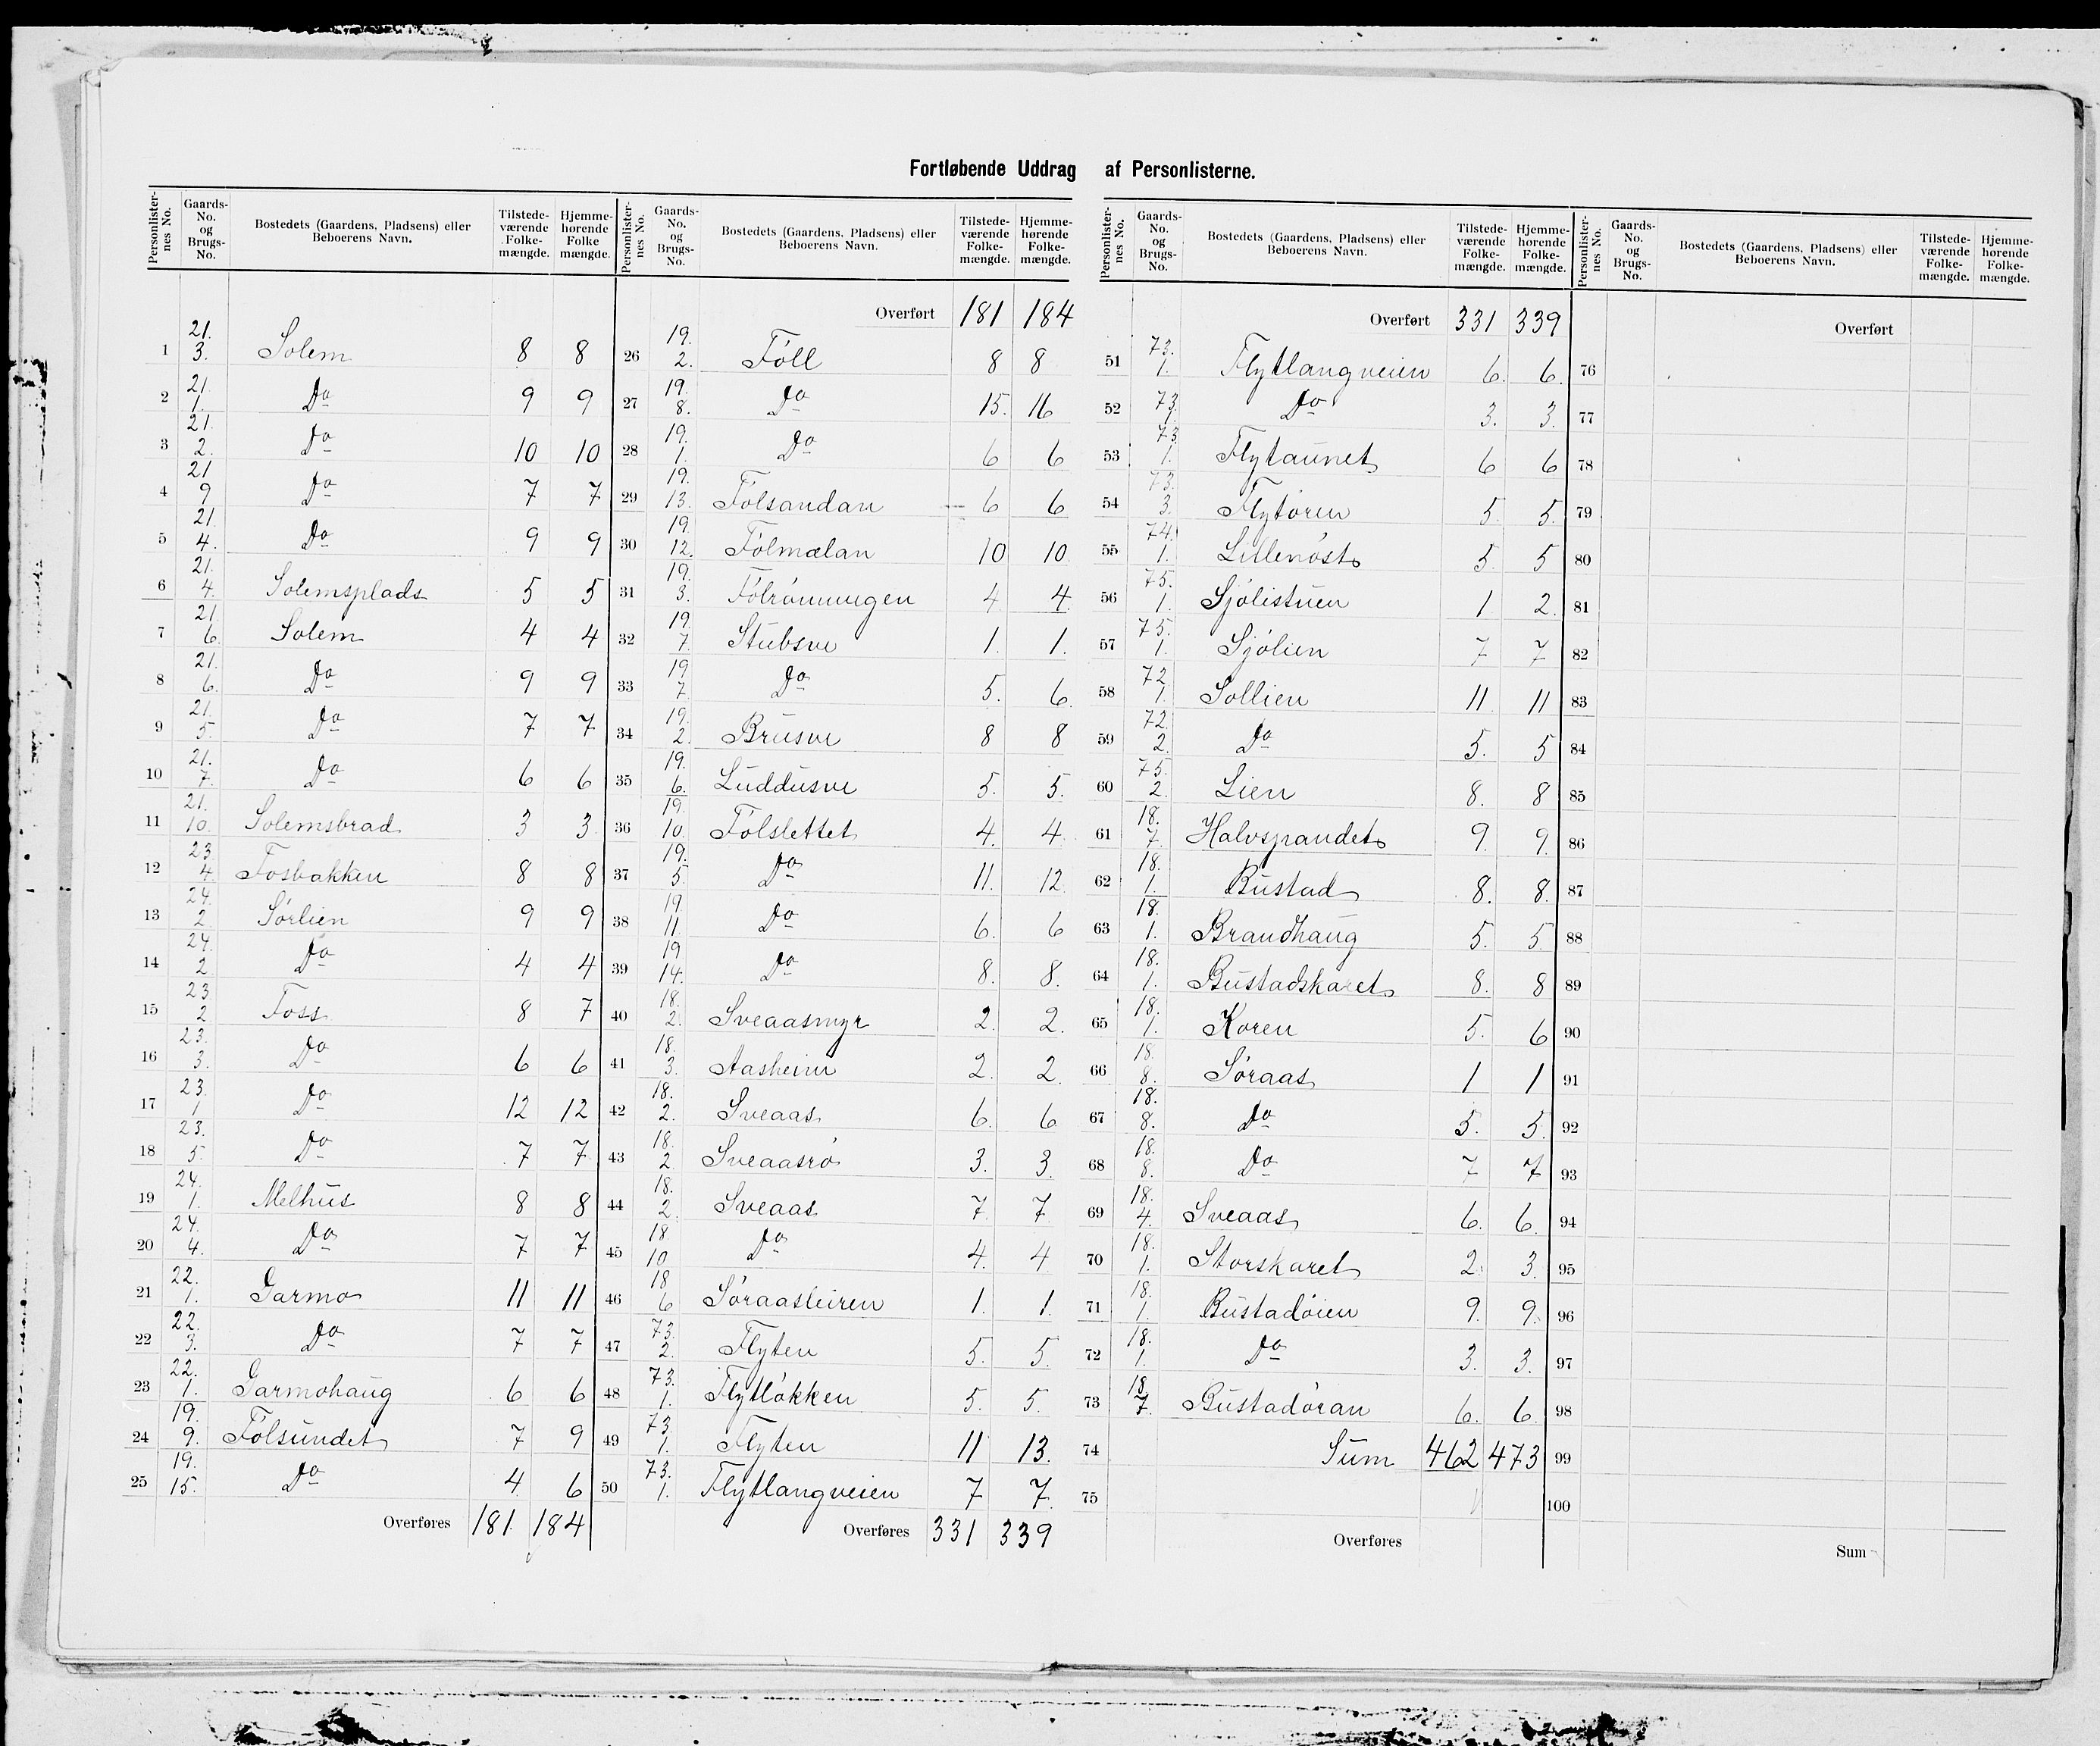 Fortløbende Uddrag af Personlisterne.
Personlisternes No. Gaards-No. og Brugs-No. Bostedets (Gaardens, Pladsens) eller Beboerens Navn. Tilstedeværende Folkemængde. Hjemmehørende Folkemængde.
1 21. 3. Solem 8 8
2 21. 1. Do 9 9
3 21. 2. Do 10 10
4 21 9 Do 7 7
5 21. 4. Do 9 9
6 21. 4. Solemsplads 5 5
7 21. 6. Solem 4 4
8 21. 6. Do 9 9
9 21. 5. Do 7 7
10 21. 7. Do 6 6
11 21. 10. Solemsbrad 3 3
12 23. 4. Fosbakken 8 8
13 24. 2. Sörlien 9 9
14 24. 2 Do 4 4
15 23 2 Foss 8 7
16 23. 3. Do 6 6
17 23. 1 Do 12 12
18 23. 5. Do 7 7
19 24. 1. Melhus 8 8
20 24. 4. Do 7 7
21 22. 1. Garmo 11 11
22 22. 3. Do 7 7
23 22. 1. Garmohaug 6 6
24 19. 9. Fölsundet 7 9
25 19. 15. Do 4 6
Overføres 181. 184
Personlisternes No. Gaards-No. og Brugs-No. Bostedets (Gaardens, Pladsens) eller Beboerens Navn. Tilstedeværende Folkemængde. Hjemmehørende Folkemængde.
Overført 181 184
26 19. 2. Föll 8 8
27 19. 8. Do 15. 16
28 19. 1. Do 6 6
29 19. 13. Fölsandan 6 6
30 19. 12. Fölmælan 10 10
31 19. 3. Fölrönningen 4 4
32 19. 7. Stubsve 1. 1.
33 19 7. Do 5. 6.
34 19. 2. Brusve 8 8
35 19. 6. Luddusve 5. 5.
36 19. 10. Fölslettet 4. 4
37 19. 5. Do 11. 12
38 19 11. Do 6. 6
39 19 14. Do 8. 8.
40 18. 2. Sveaasmyr 2. 2.
41 18. 3. Aasheim 2. 2
42 18. 2. Sveaas 6. 6
43 18. 2 Sveaasrö 3. 3.
44 18. 2. Sveaas 7. 7
45 18 10 Do 4. 4
46 18 6 Söraasleiren 1. 1.
47 73. 2. Flyten 5. 5.
48 73. 1. Flytlökken 5. 5.
49 73 1. Flyten 11 13.
50 73. 1. Flytlangveien 7 7.
Overføres 331 339
Personlisternes No. Gaards-No. og Brugs-No. Bostedets (Gaardens, Pladsens) eller Beboerens Navn. Tilstedeværende Folkemængde. Hjemmehørende Folkemængde.
Overført 331 339
51 73. 1. Flytlangveien 6. 6.
52 73. 1. Do 3. 3.
53 73 1. Flytaunet 6 6
54 73. 3. Flytören 5. 5.
55 74. 1. Lillenöst 5. 5
56 75. 1. Sjölistuen 1 2.
57 75. 1. Sjölien 7 7
58 72 1. Sollien 11 11
59 72. 2. Do 5. 5
60 75. 2. Lien 8. 8
61 18. 7. Halvspandet 9. 9.
62 18. 1. Bustad 8. 8.
63 18. 1. Brandhaug 5. 5
64 18. 1. Bustadskaret 8. 8
65 18. 1. Koren 5. 6
66 18. 8. Söraas 1 1
67 18. 8. Do 5. 5.
68 18. 8. Do 7 7
69 18. 4. Sveaas 6. 6.
70 18. 1. Storskaret 2. 3.
71 18. 1. Bustadöien 9. 9.
72 18. 1. Do 3. 3.
73 18. 7. Bustadöran 6. 6.
74 Sum 462 473
75
Overføres
Personlisternes No. Gaards-No. og Brugs-No. Bostedets (Gaardens, Pladsens) eller Beboerens Navn. Tilstedeværende Folkemængde. Hjemmehørende Folkemængde.
Overført
76
77
78
79
80
81
82
83
84
85
86
87
88
89
90
91
92
93
94
95
96
97
98
99
100
Sum